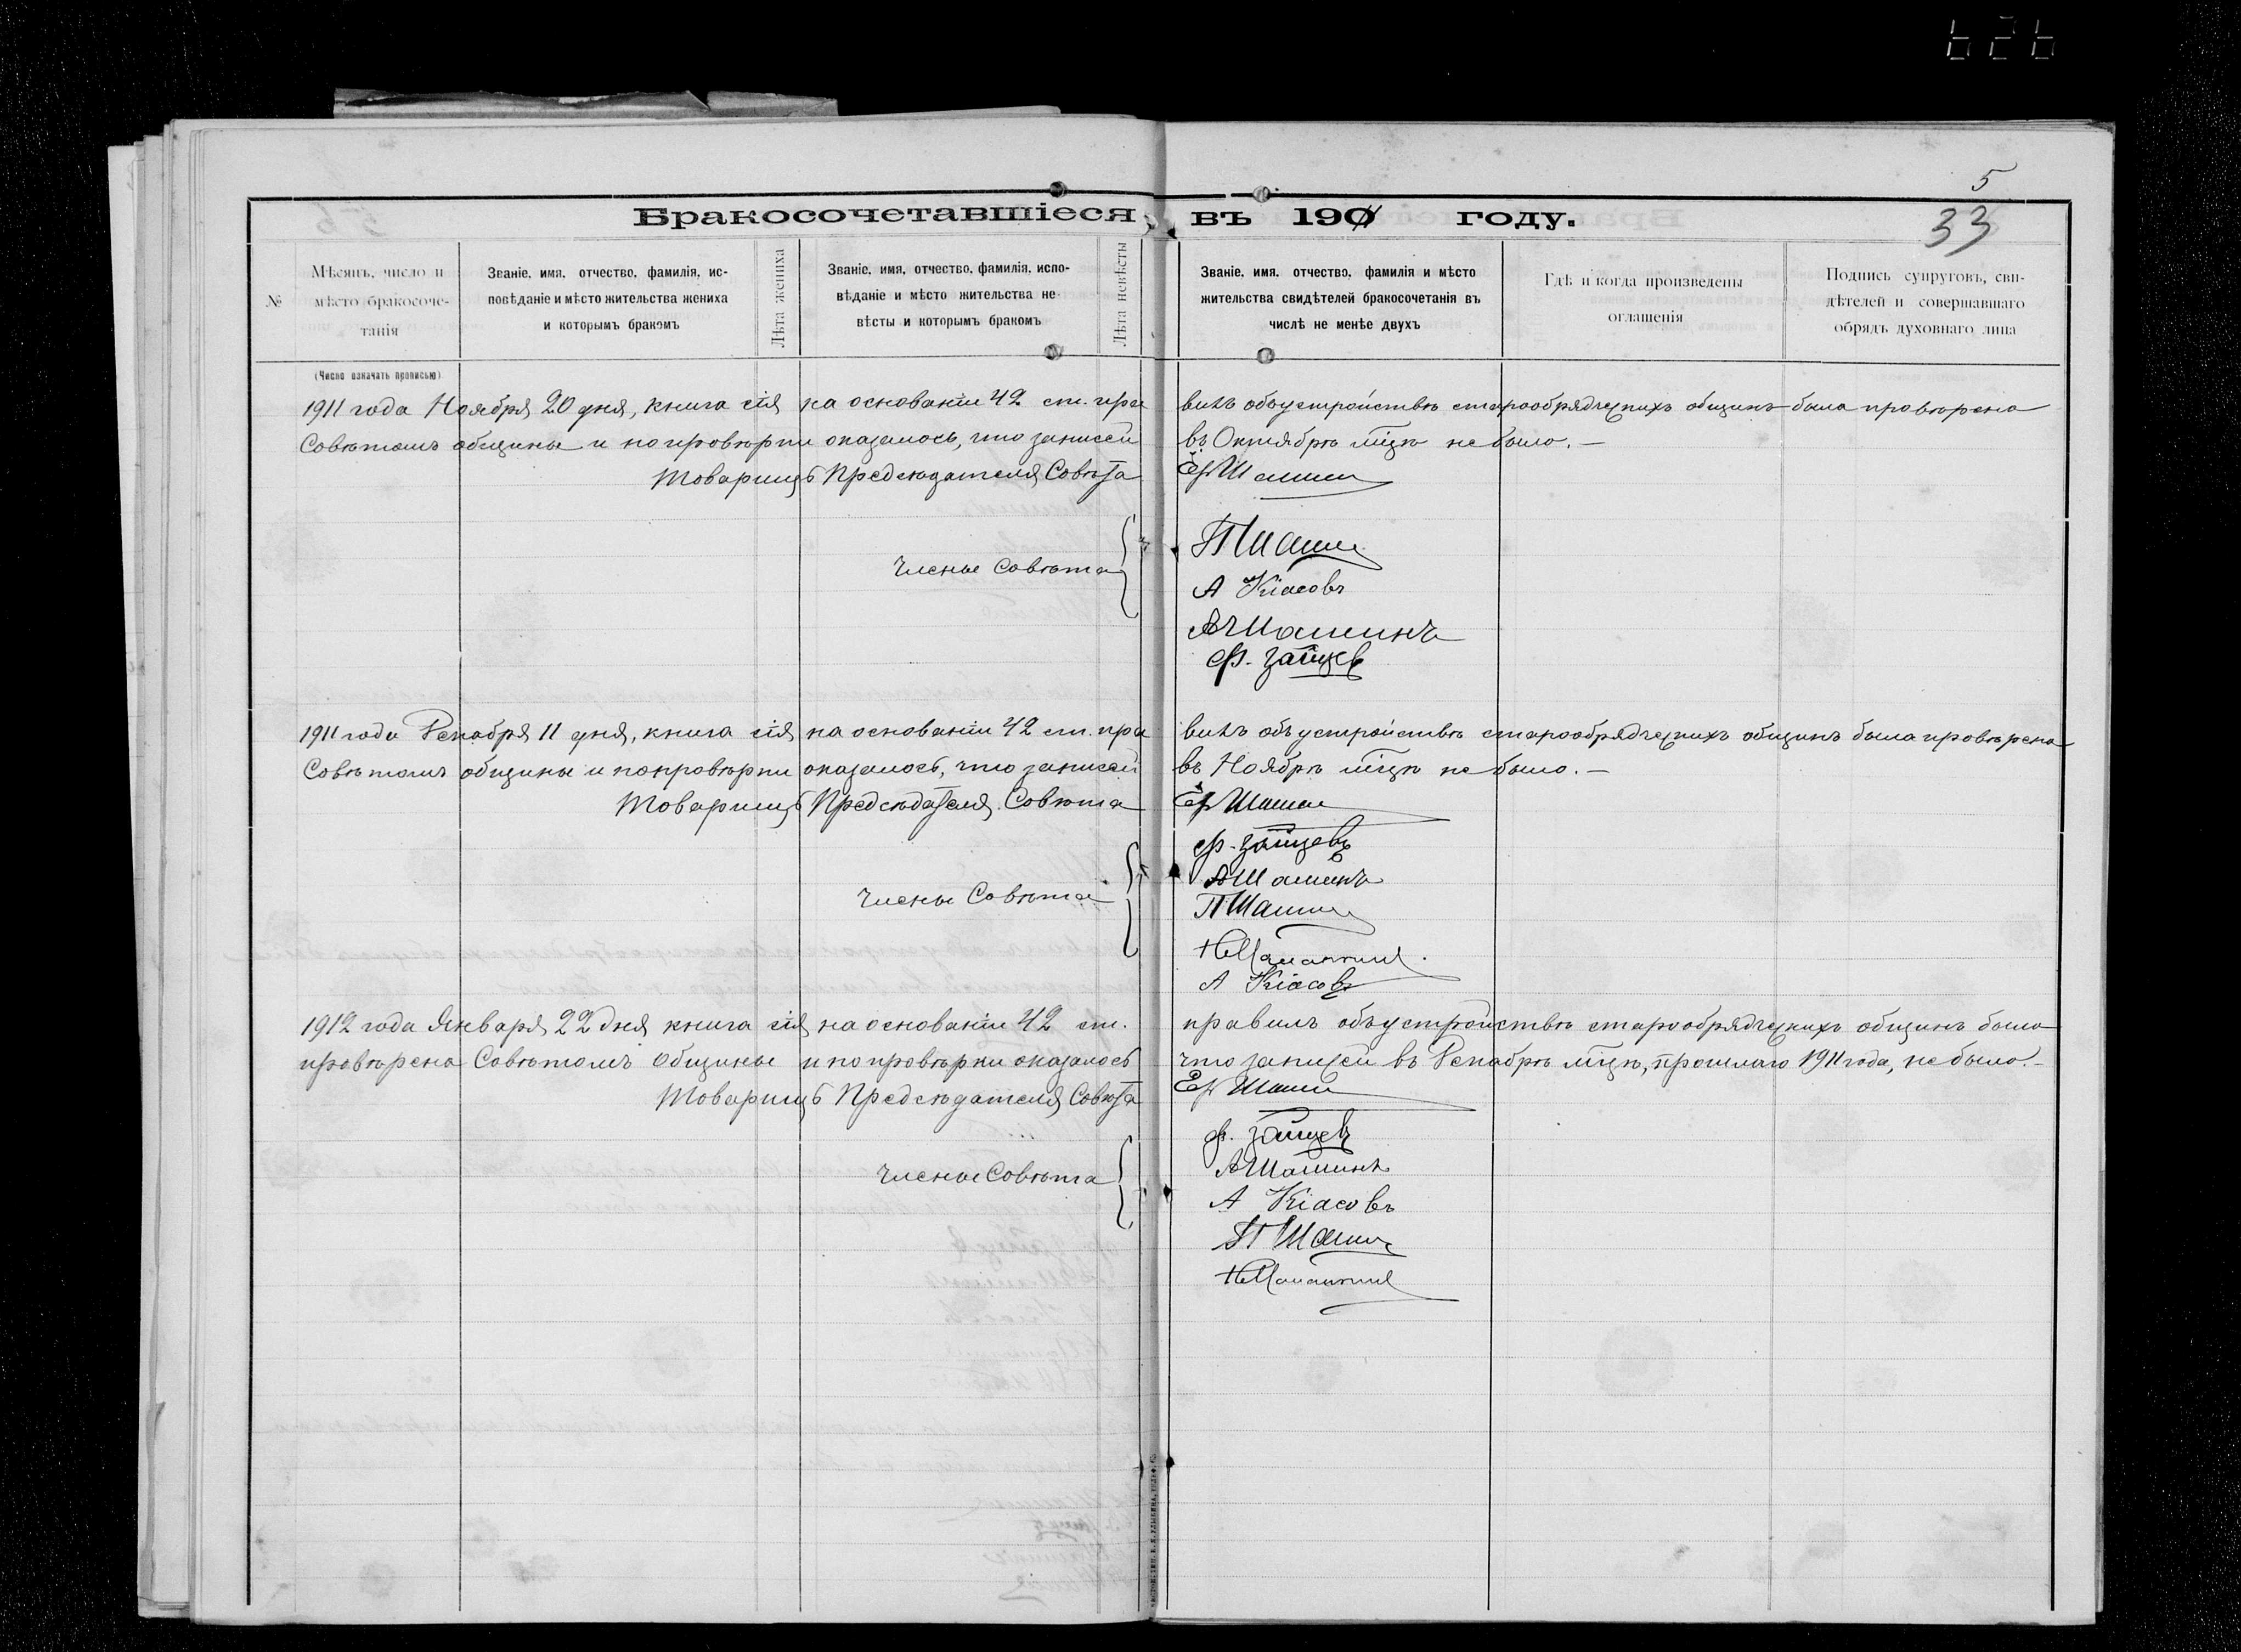 5
33
Бракосочетавшіеся въ 190 году.
№
Мѣсяцъ, число и мѣсто бракосочетанія
Званіе, имя, отчество, фамилія, исповѣданіе и мѣсто жительства жениха и которымъ бракомъ
Лѣта жениха
Званіе, имя, отчество, фамилія, исповѣданіе и мѣсто жительства невѣсты и которымъ бракомъ
Лѣта невѣсты
Званіе, имя, отчество, фамилія и мѣсто жительства свидѣтелей бракосочетанія въ числѣ не менѣе двухъ
Гдѣ и когда произведены оглашенія
Подпись супруговъ, свидѣтелей и совершавшаго обрядъ духовнаго лица
(Число означать прописью)
1911 года Ноября 20 дня, книга сія на основаніи 42 ст. правилъ объ устройствѣ старообрядческихъ общинъ была провѣрена
Совѣтомъ общины и по провѣрки оказалось, что записей въ Октябрѣ м͠цѣ не было. —
Товарищъ Предсѣдателя Совѣта
Члены Совѣта
П Шашин
А Кіасовъ
А Шашинъ
Ф. Зайцев
1911 года Декабря 11 дня, книга сія на основаніи 42 ст. правилъ объ устройствѣ старообрядческихъ общинъ была провѣрена
Совѣтомъ общины и по провѣрки оказалось, что записей въ Ноябрѣ м͠цѣ не было. —
Товарищъ Предсѣдателя Совѣта
Члены Совѣта
Ф. Зайцевъ
А Шашинъ
П Шашин
А Кіасовъ
1912 года Января 22 дня книга сія на основаніи 42 ст. правилъ объ устройствѣ старообрядческихъ общинъ была
провѣрена Совѣтомъ общины и по провѣрки оказалось что записей въ Декабрѣ м͠цѣ, прошлаго 1911 года, не было. —
Товарищъ Предсѣдателя Совѣта
Члены Совѣта
Ф. Зайцевъ
А Шашинъ
А Кіасовъ
П Шашин